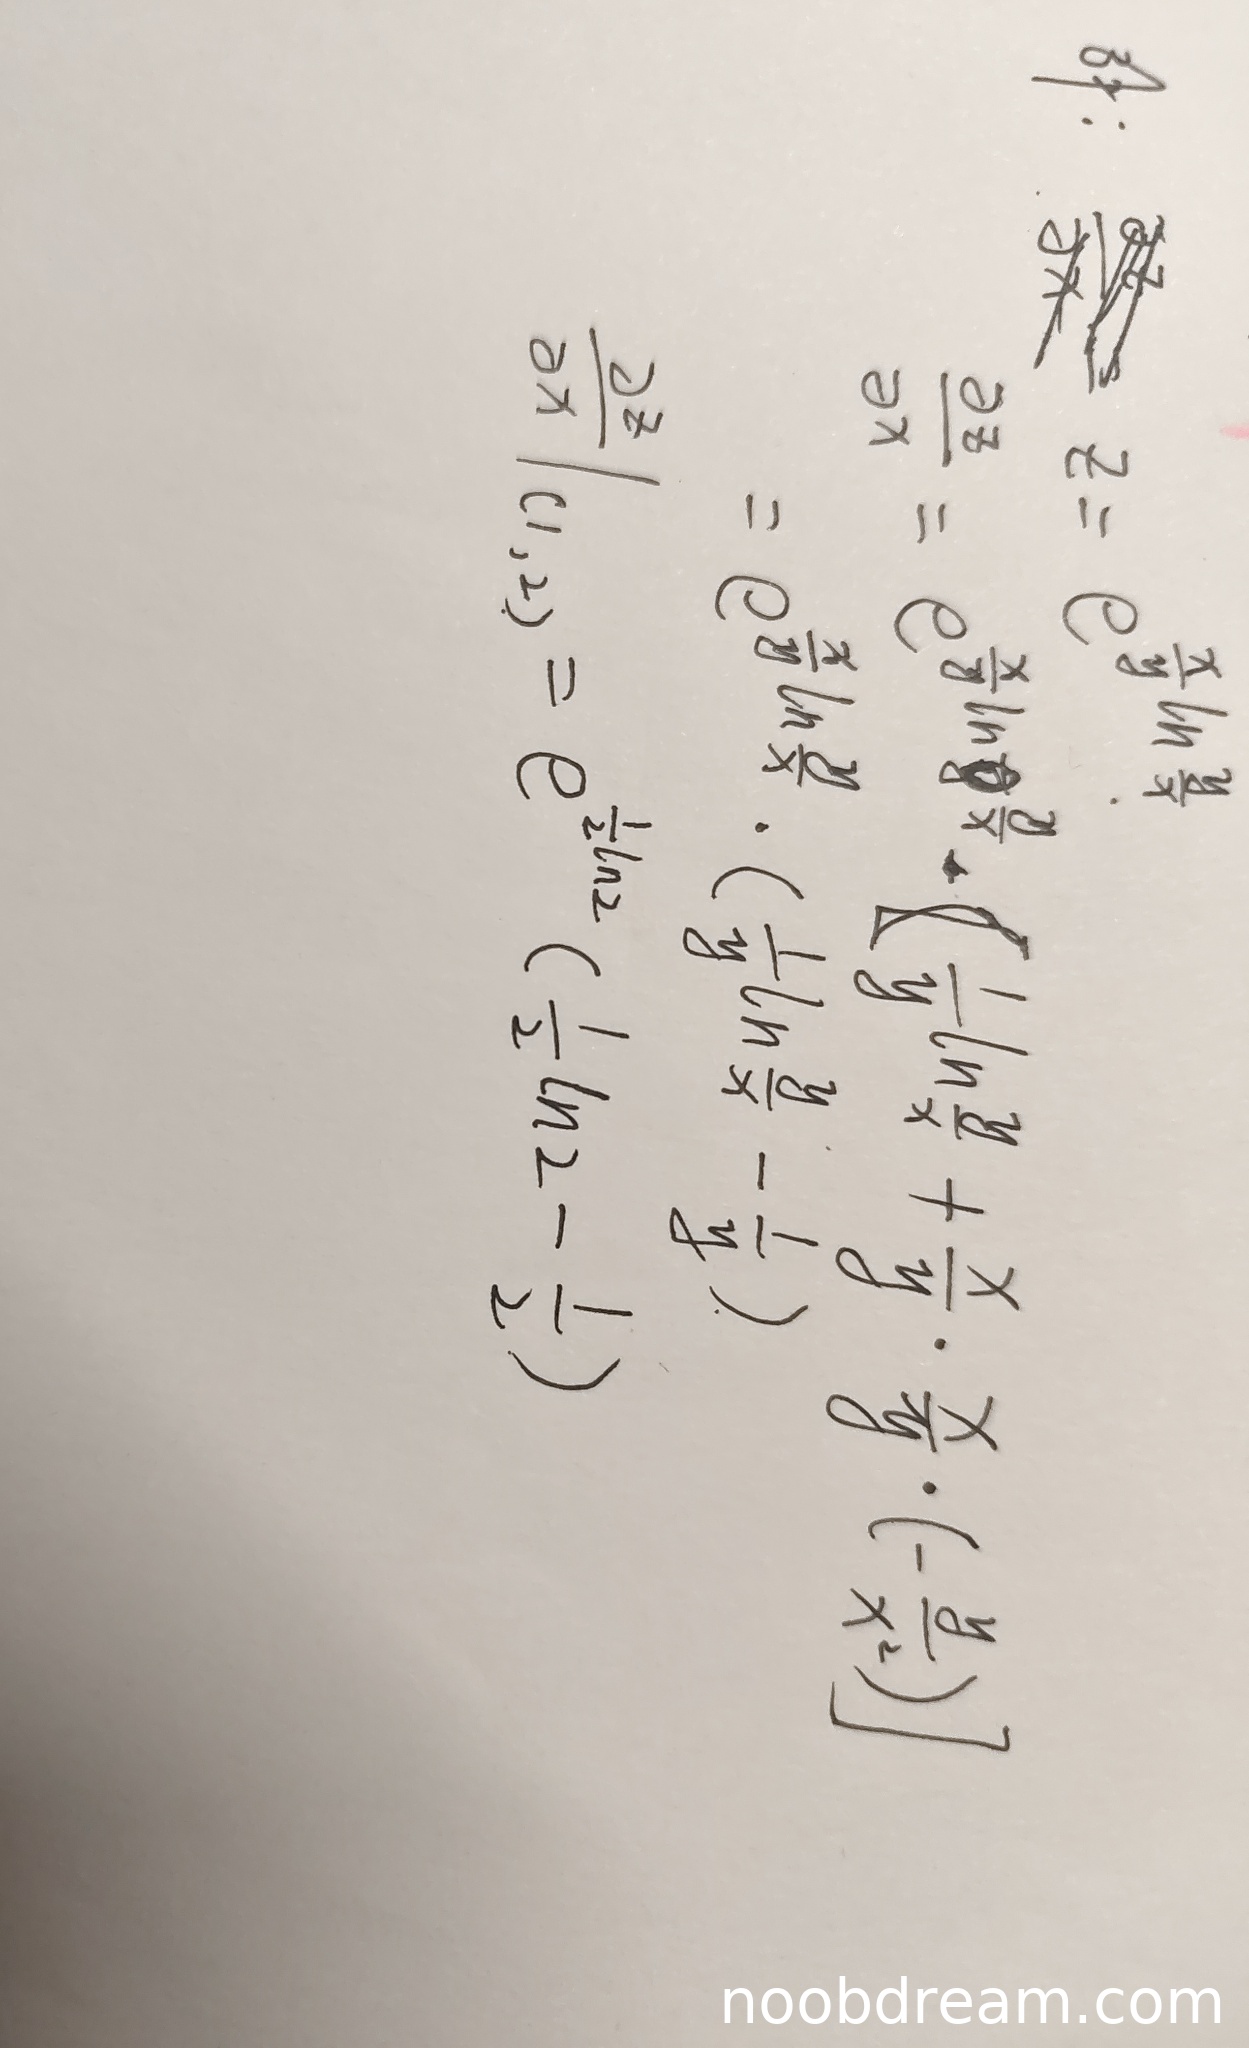 解: z = e^{\frac{x}{y} ln \frac{y}{x}}.
\frac{∂z}{∂x} = e^{\frac{x}{y} ln \frac{y}{x}} · [\frac{1}{y} ln \frac{y}{x} + \frac{x}{y} · \frac{x}{y} · (-\frac{y}{x^2})]
= e^{\frac{x}{y} ln \frac{y}{x}} · (\frac{1}{y} ln \frac{y}{x} - \frac{1}{y})
\frac{∂z}{∂x} |_{(1,2)} = e^{\frac{1}{2} ln 2} (\frac{1}{2} ln 2 - \frac{1}{2})
noobdream.com